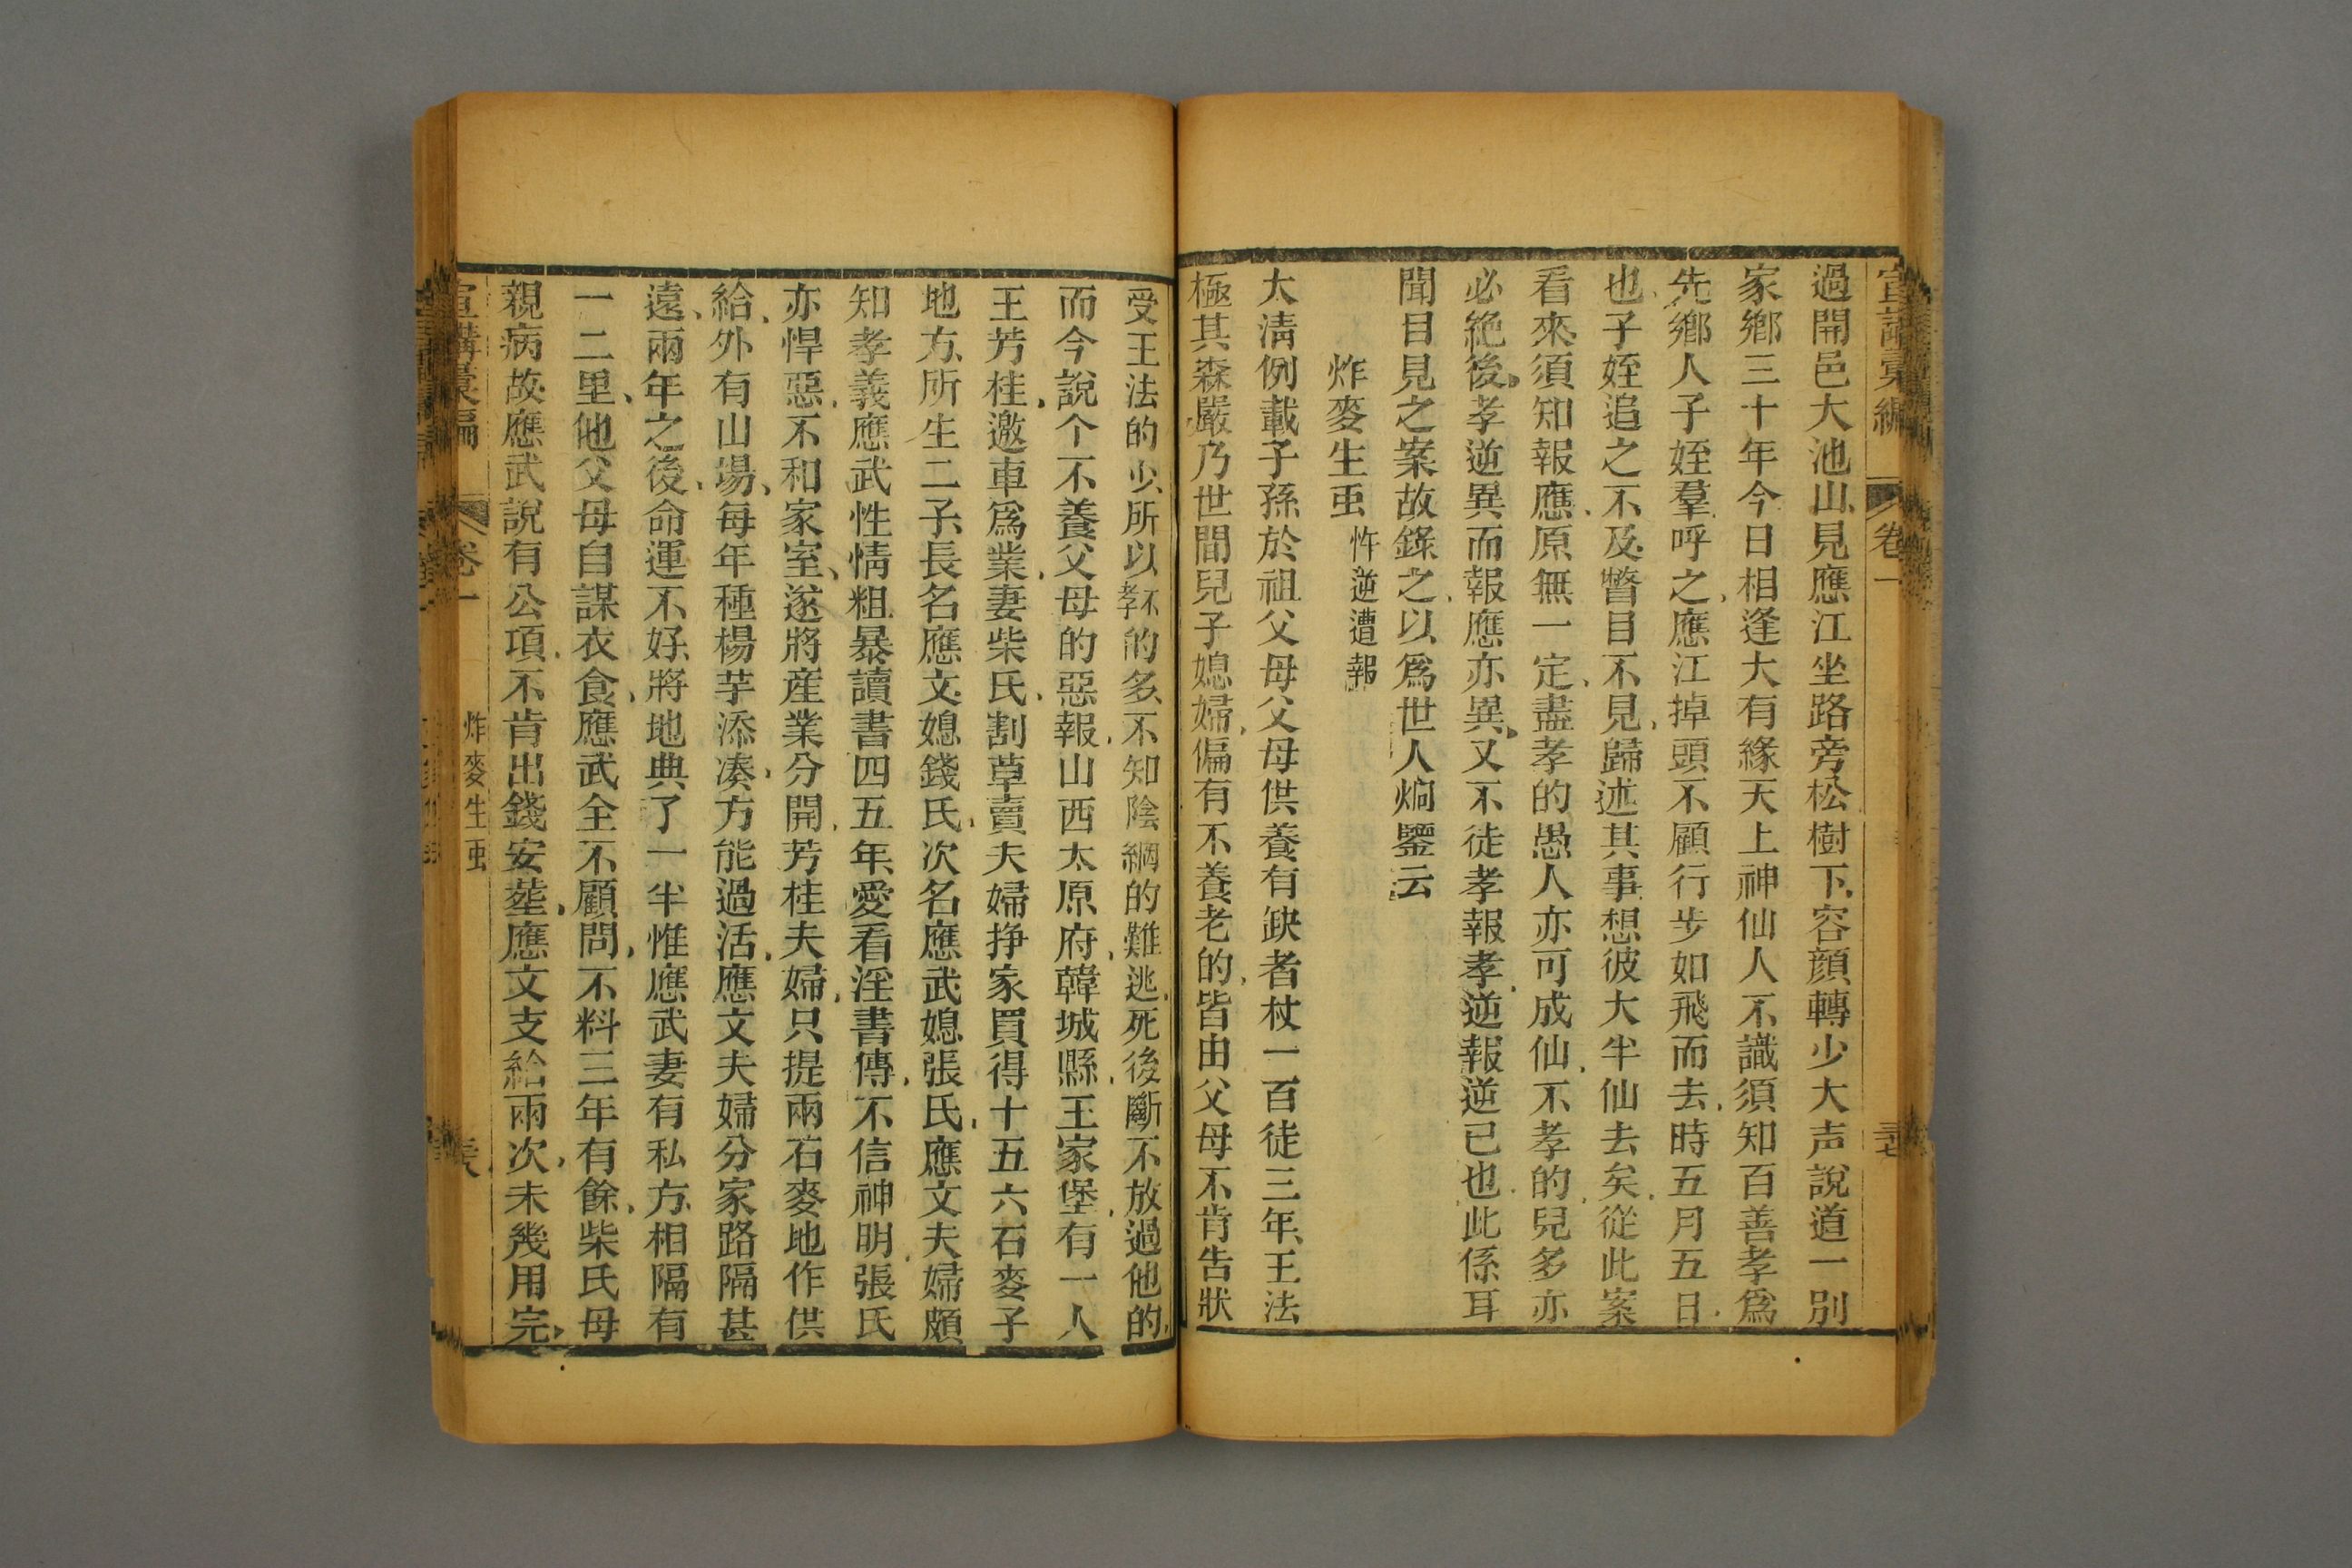 宣講彙編 卷一 三七
過開邑大池山、見應江坐路旁松樹下、容顔轉少大声說道一別
家鄉三十年今日相逢大有緣天上神仙人不識須知百善孝爲
先鄉人子姪羣呼之、應江掉頭不顧行步如飛而去、時五月五日
也、子姪追之不及、瞥目不見、歸述其事、想彼大半仙去矣、從此案
看來、須知報應、原無一定、盡孝的愚人亦可成仙、不孝的兒多亦
必絶後、孝逆異而報應亦異、又不徒孝報孝、逆報逆已也、此係耳
聞目見之案、故錄之、以爲世人烱鑒云
炸麥生䖝 忤逆遭報
大清例載子孫於祖父母父母供養有缺者杖一百徒三年、王法
極其森嚴乃世間兒子媳婦、偏有不養老的、皆由父母不肯告狀
受王法的少、所以不孝的多、不知陰網的難逃、死後斷不放過他的、
而今說个不養父母的惡報、山西太原府、韓城縣、王家堡、有一人
王芳桂、邀車爲業、妻柴氏、割草賣夫婦挣家買得十五六石麥子
地方、所生二子、長名應文、媳錢氏、次名應武媳張氏、應文夫婦頗
知孝義應武性情粗暴讀書四五年、愛看淫書傳、不信神明、張氏
亦悍惡、不和家室、遂將産業分開、芳桂夫婦、只提兩石麥地作供
給、外有山場、每年種楊芋添凑、方能過活、應文夫婦分家路隔甚
遠、兩年之後、命運不好、將地典了一半惟應武妻有私方、相隔有
一二里、他父母自謀衣食、應武全不顧問、不料三年有餘、柴氏母
親病故、應武説有公項、不肯出錢安塟、應文支給兩次、未幾用完、
宣講彙編 卷一 炸麥生䖝 三八